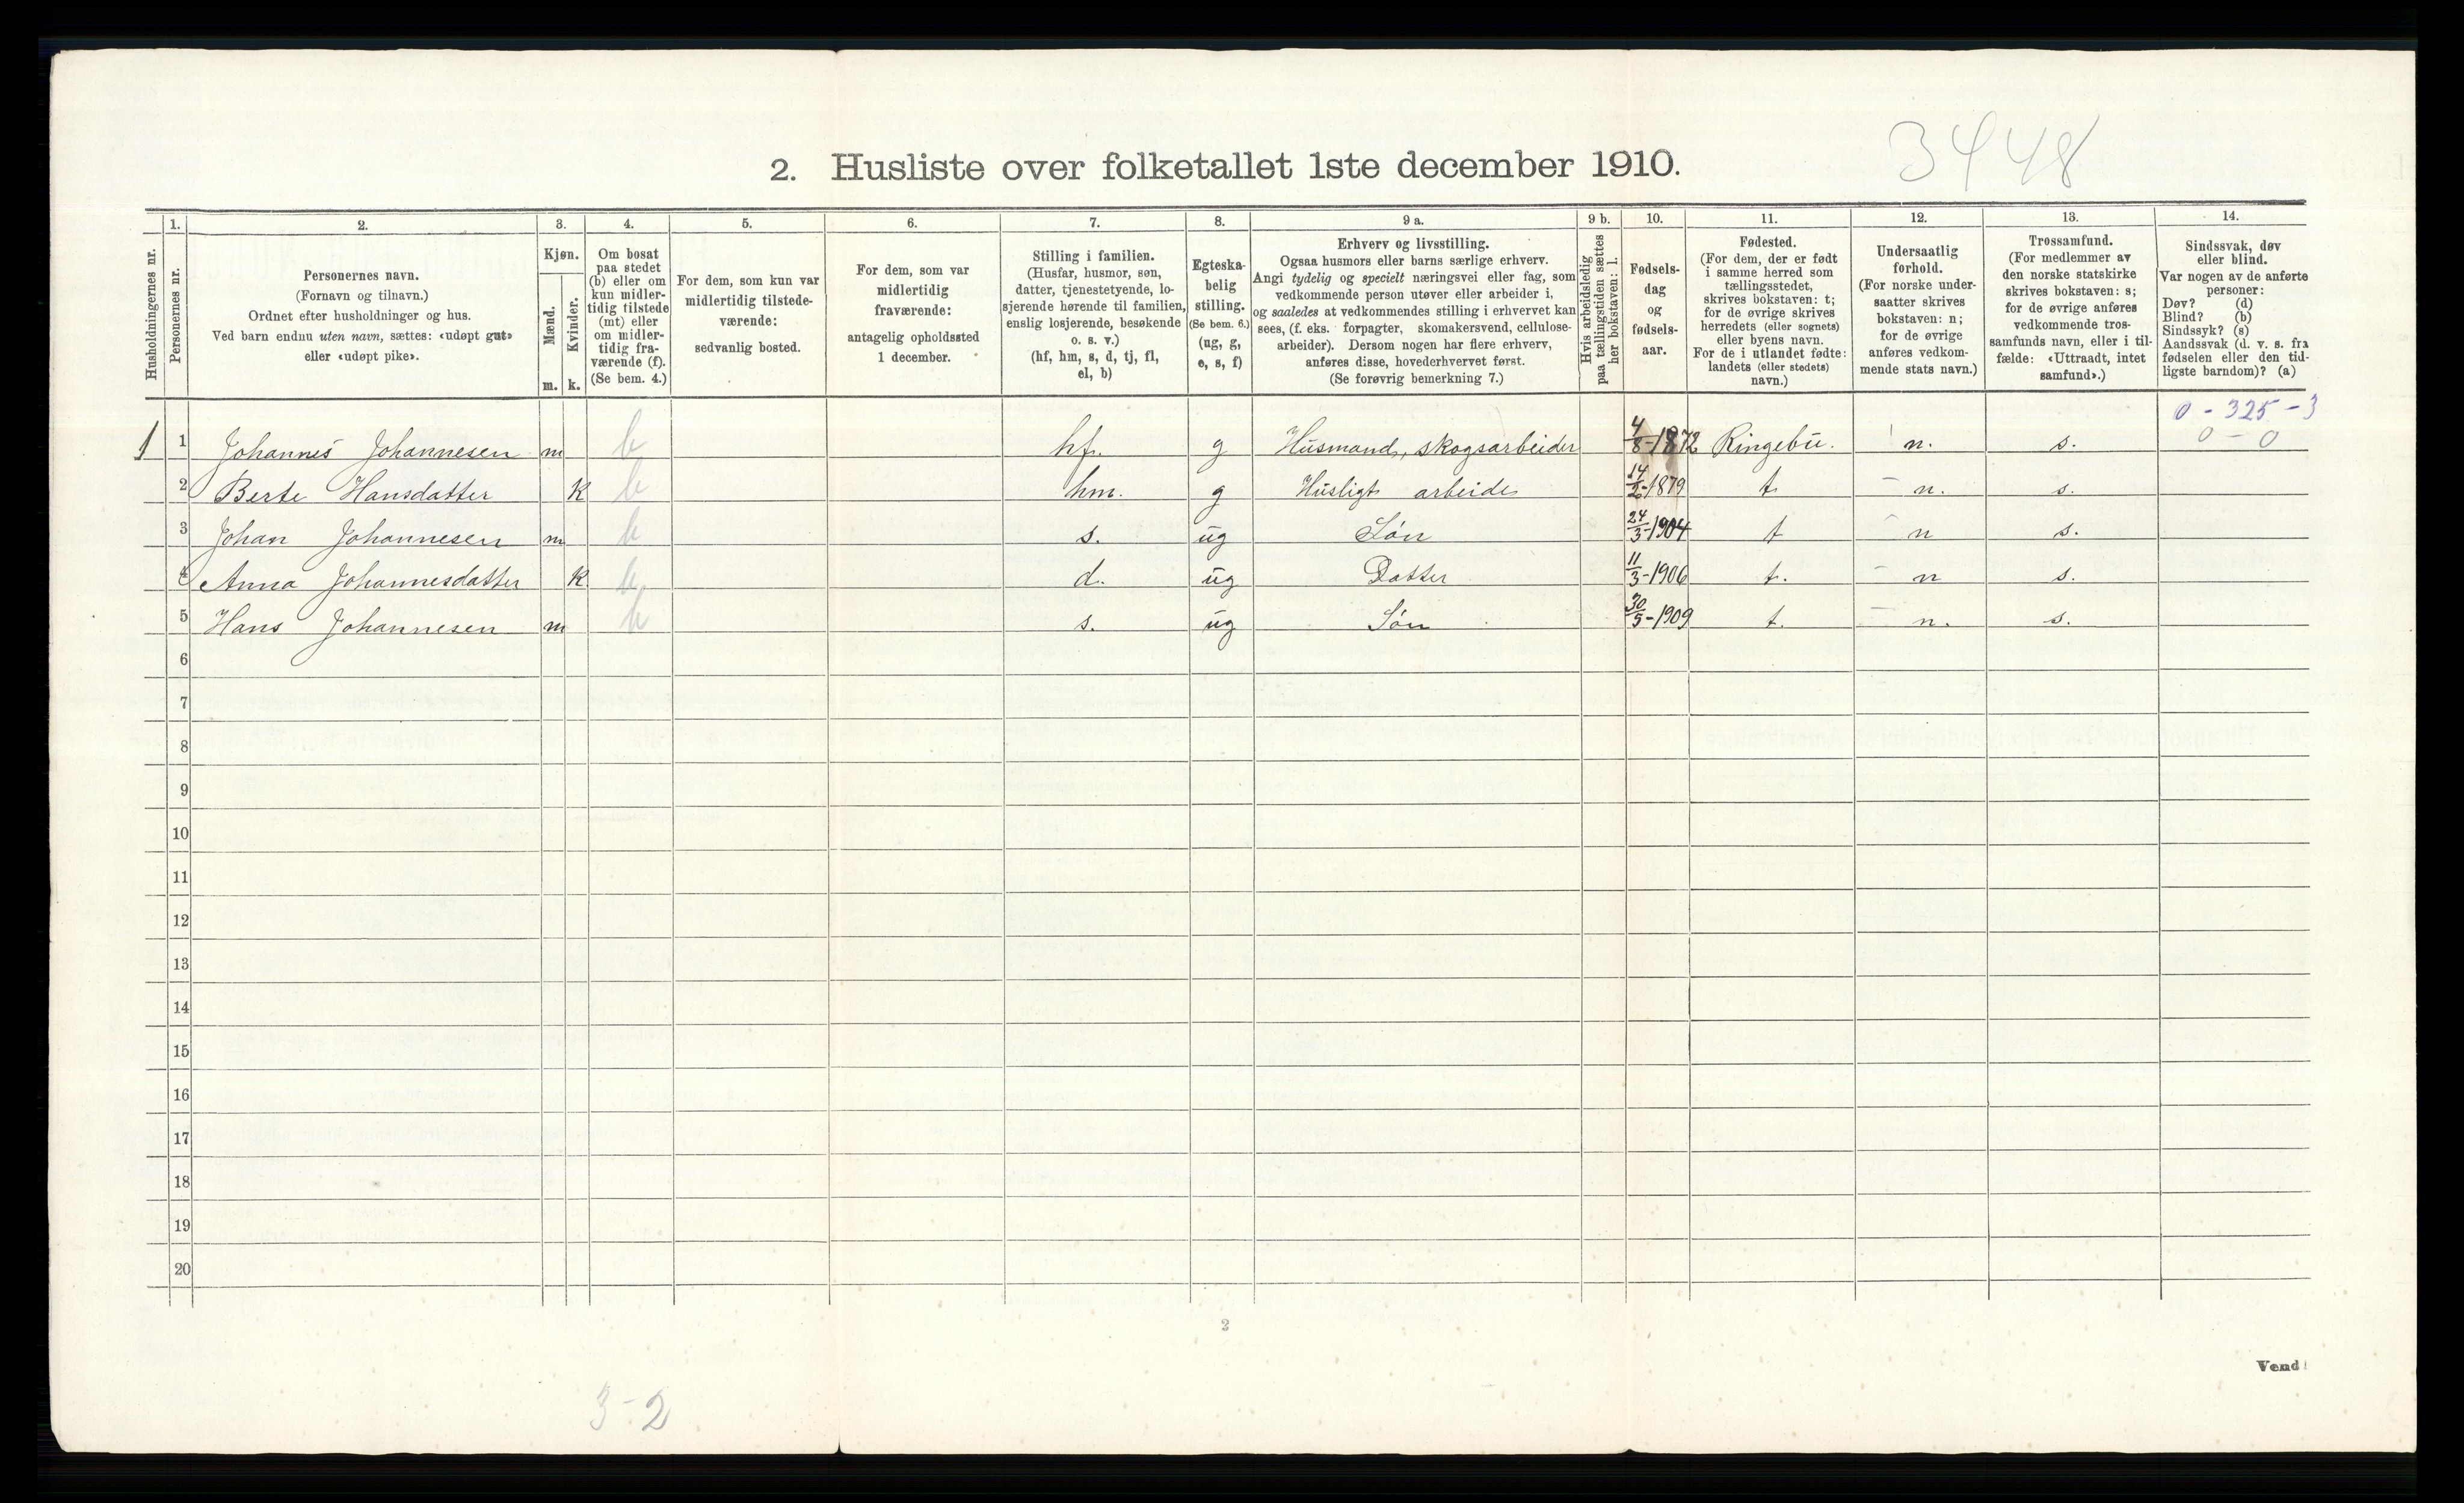 3448
2. Husliste over folketallet 1ste december 1910.
Husholdningernes nr.
1.
Personernes nr.
2.
Personernes navn.
(Fornavn og tilnavn.)
Ordnet efter husholdninger og hus.
Ved barn endnu uten navn, sættes: «udøpt gut»
eller «udøpt pike».
3.
Kjøn.
Mænd.
m.
Kvinder.
k.
4.
Om bosat
paa stedet
(b) eller om
kun midler-
tidig tilstede
(mt) eller
om midler-
tidig fra-
værende (f).
(Se bem. 4.)
5.
For dem, som kun var
midlertidig tilstede-
værende:
sedvanlig bosted.
6.
For dem, som var
midlertidig
fraværende:
antagelig opholdssted
1 december.
7.
Stilling i familien.
(Husfar, husmor, søn,
datter, tjenestetyende, lo-
sjerende hørende til familien,
enslig losjerende, besøkende
o. s. v.)
(hf, hm, s, d, tj, fl,
el, b)
8.
Egteska-
belig
stilling.
(Se bem. 6.)
(ug, g,
e, s, f)
9 a.
Erhverv og livsstilling.
Ogsaa husmors eller barns særlige erhverv.
Angi tydelig og specielt næringsvei eller fag, som
vedkommende person utøver eller arbeider i,
og saaledes at vedkommendes stilling i erhvervet kan
sees, (f. eks. forpagter, skomakersvend, cellulose-
arbeider). Dersom nogen har flere erhverv,
anføres disse, hovederhvervet først.
(Se forøvrig bemerkning 7.)
9 b.
Hvis arbeidsledig
paa tællingstiden sættes
her bokstaven: l.
10.
Fødsels-
dag
og
fødsels-
aar.
11.
Fødested.
(For dem, der er født
i samme herred som
tællingsstedet,
skrives bokstaven: t;
for de øvrige skrives
herredets (eller sognets)
eller byens navn.
For de i utlandet fødte:
landets (eller stedets)
navn.)
12.
Undersaatlig
forhold.
(For norske under-
saatter skrives
bokstaven: n;
for de øvrige
anføres vedkom-
mende stats navn.)
13.
Trossamfund.
(For medlemmer av
den norske statskirke
skrives bokstaven: s;
for de øvrige anføres
vedkommende tros-
samfunds navn, eller i til-
fælde: «Uttraadt, intet
samfund».)
14.
Sindssvak, døv
eller blind.
Var nogen av de anførte
personer:
Døv? (d)
Blind? (b)
Sindssyk? (s)
Aandssvak (d. v. s. fra
fødselen eller den tid-
ligste barndom)? (a)
0 - 325 - 3
1 1 Johannes Johannesen m b hf. g Husmand, skogsarbeider 4/8-1872 Ringebu. n. s. 0 - 0
2 Berte Hansdatter K b hm. g Husligt arbeide 14/2-1879 t n. s.
3 Johan Johannesen m b s. ug Søn 24/3-1904 t n s.
4 Anna Johannesdatter K b d. ug Datter 11/3-1906 t. n s.
5 Hans Johannesen m b s. ug Søn 30/5-1909 t. n. s.
6
7
8
9
10
11
12
13
14
15
16
17
18
19
20
2
Vend!
3-2